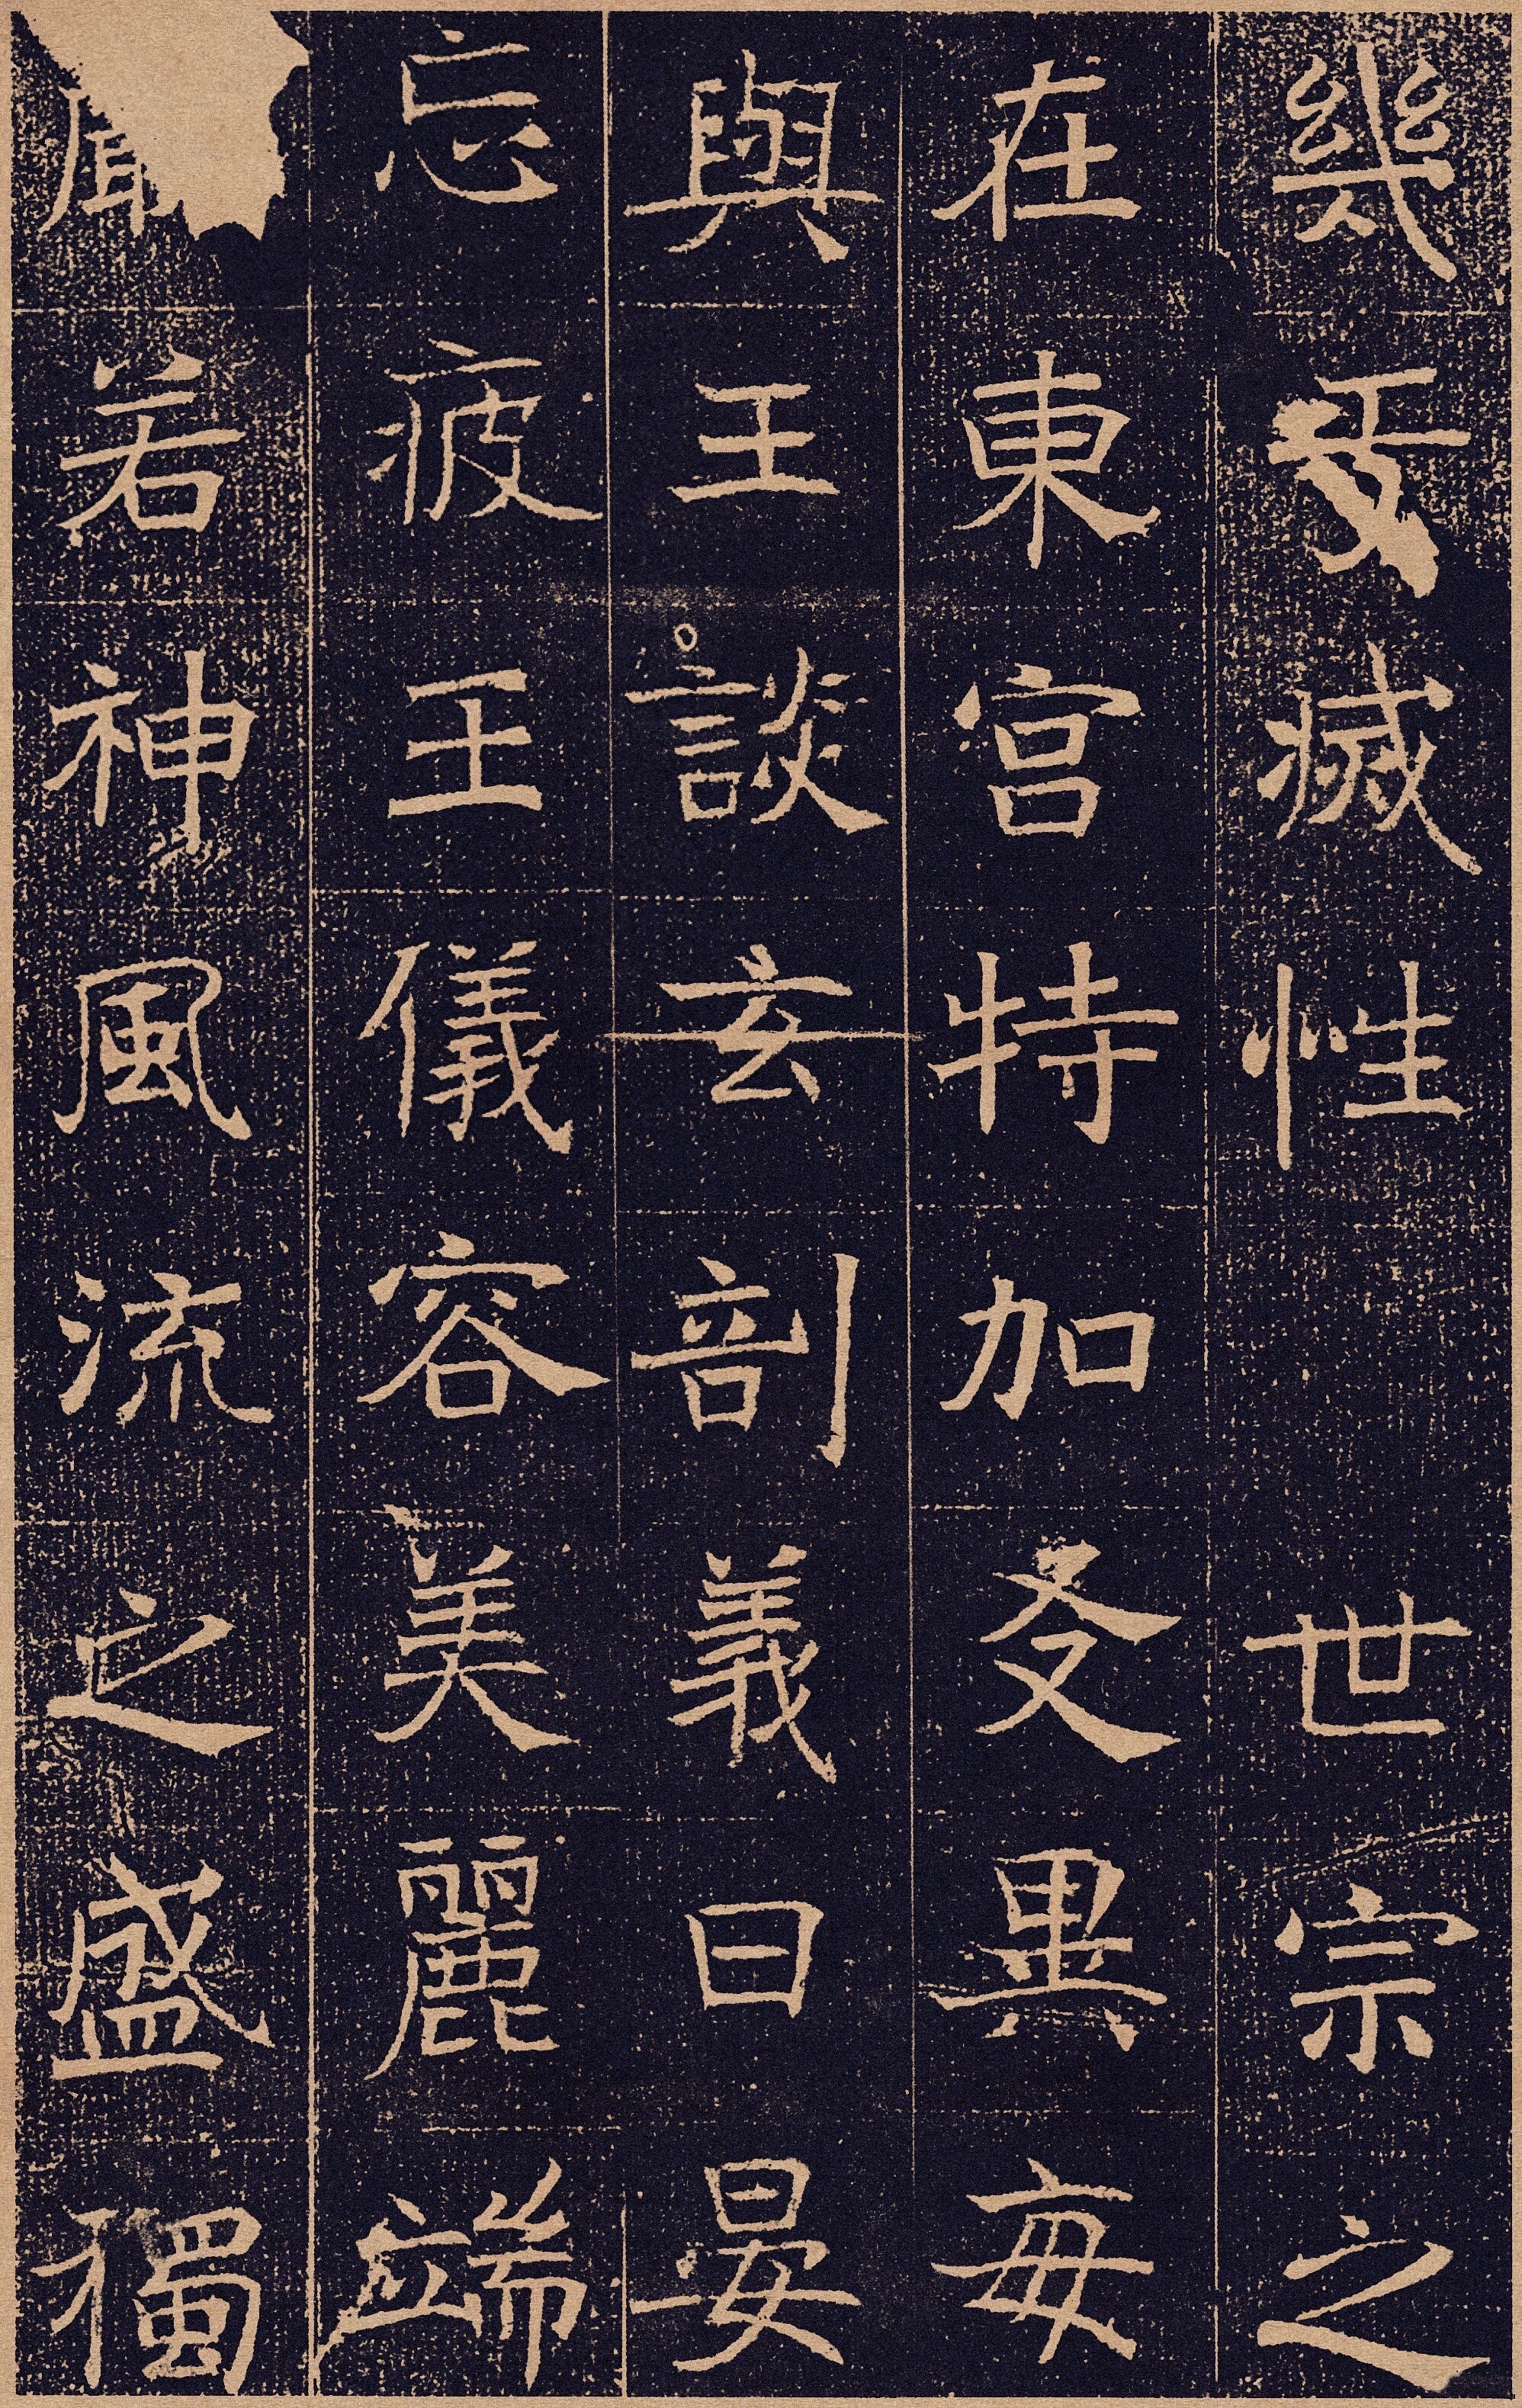 幾乎滅性　世宗之
在東宮特加友異每
與王談玄剖義日晏
忘疲王儀容美麗端
若神風流之盛獨